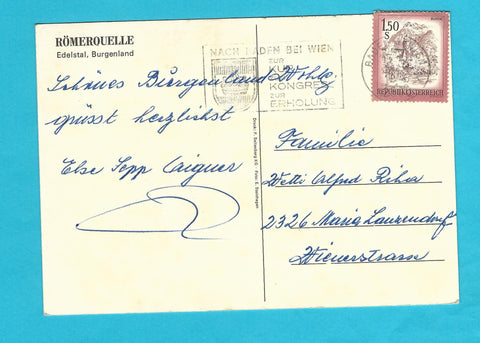 RÖMERQUELLE
Edelstal, Burgenland
Schönes Burgenland Wohlg.
grüsst herzlichst
Else Sepp Aigner
NACH BADEN BEI WIEN
ZUR
KUR
KONGRESS
ZUR
ERHOLUNG
1,50
S
REPUBLIK ÖSTERREICH
Familie
Wetti Alfred Riha
2326 Maria Lanzendorf
Wienerstrasse